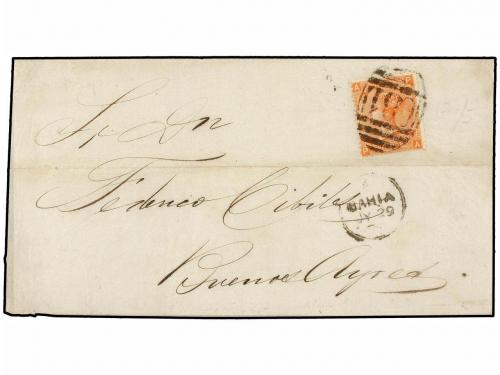 Sr Dn
Federico Cibils
Buenos Ayres.
BAHIA
JY 29